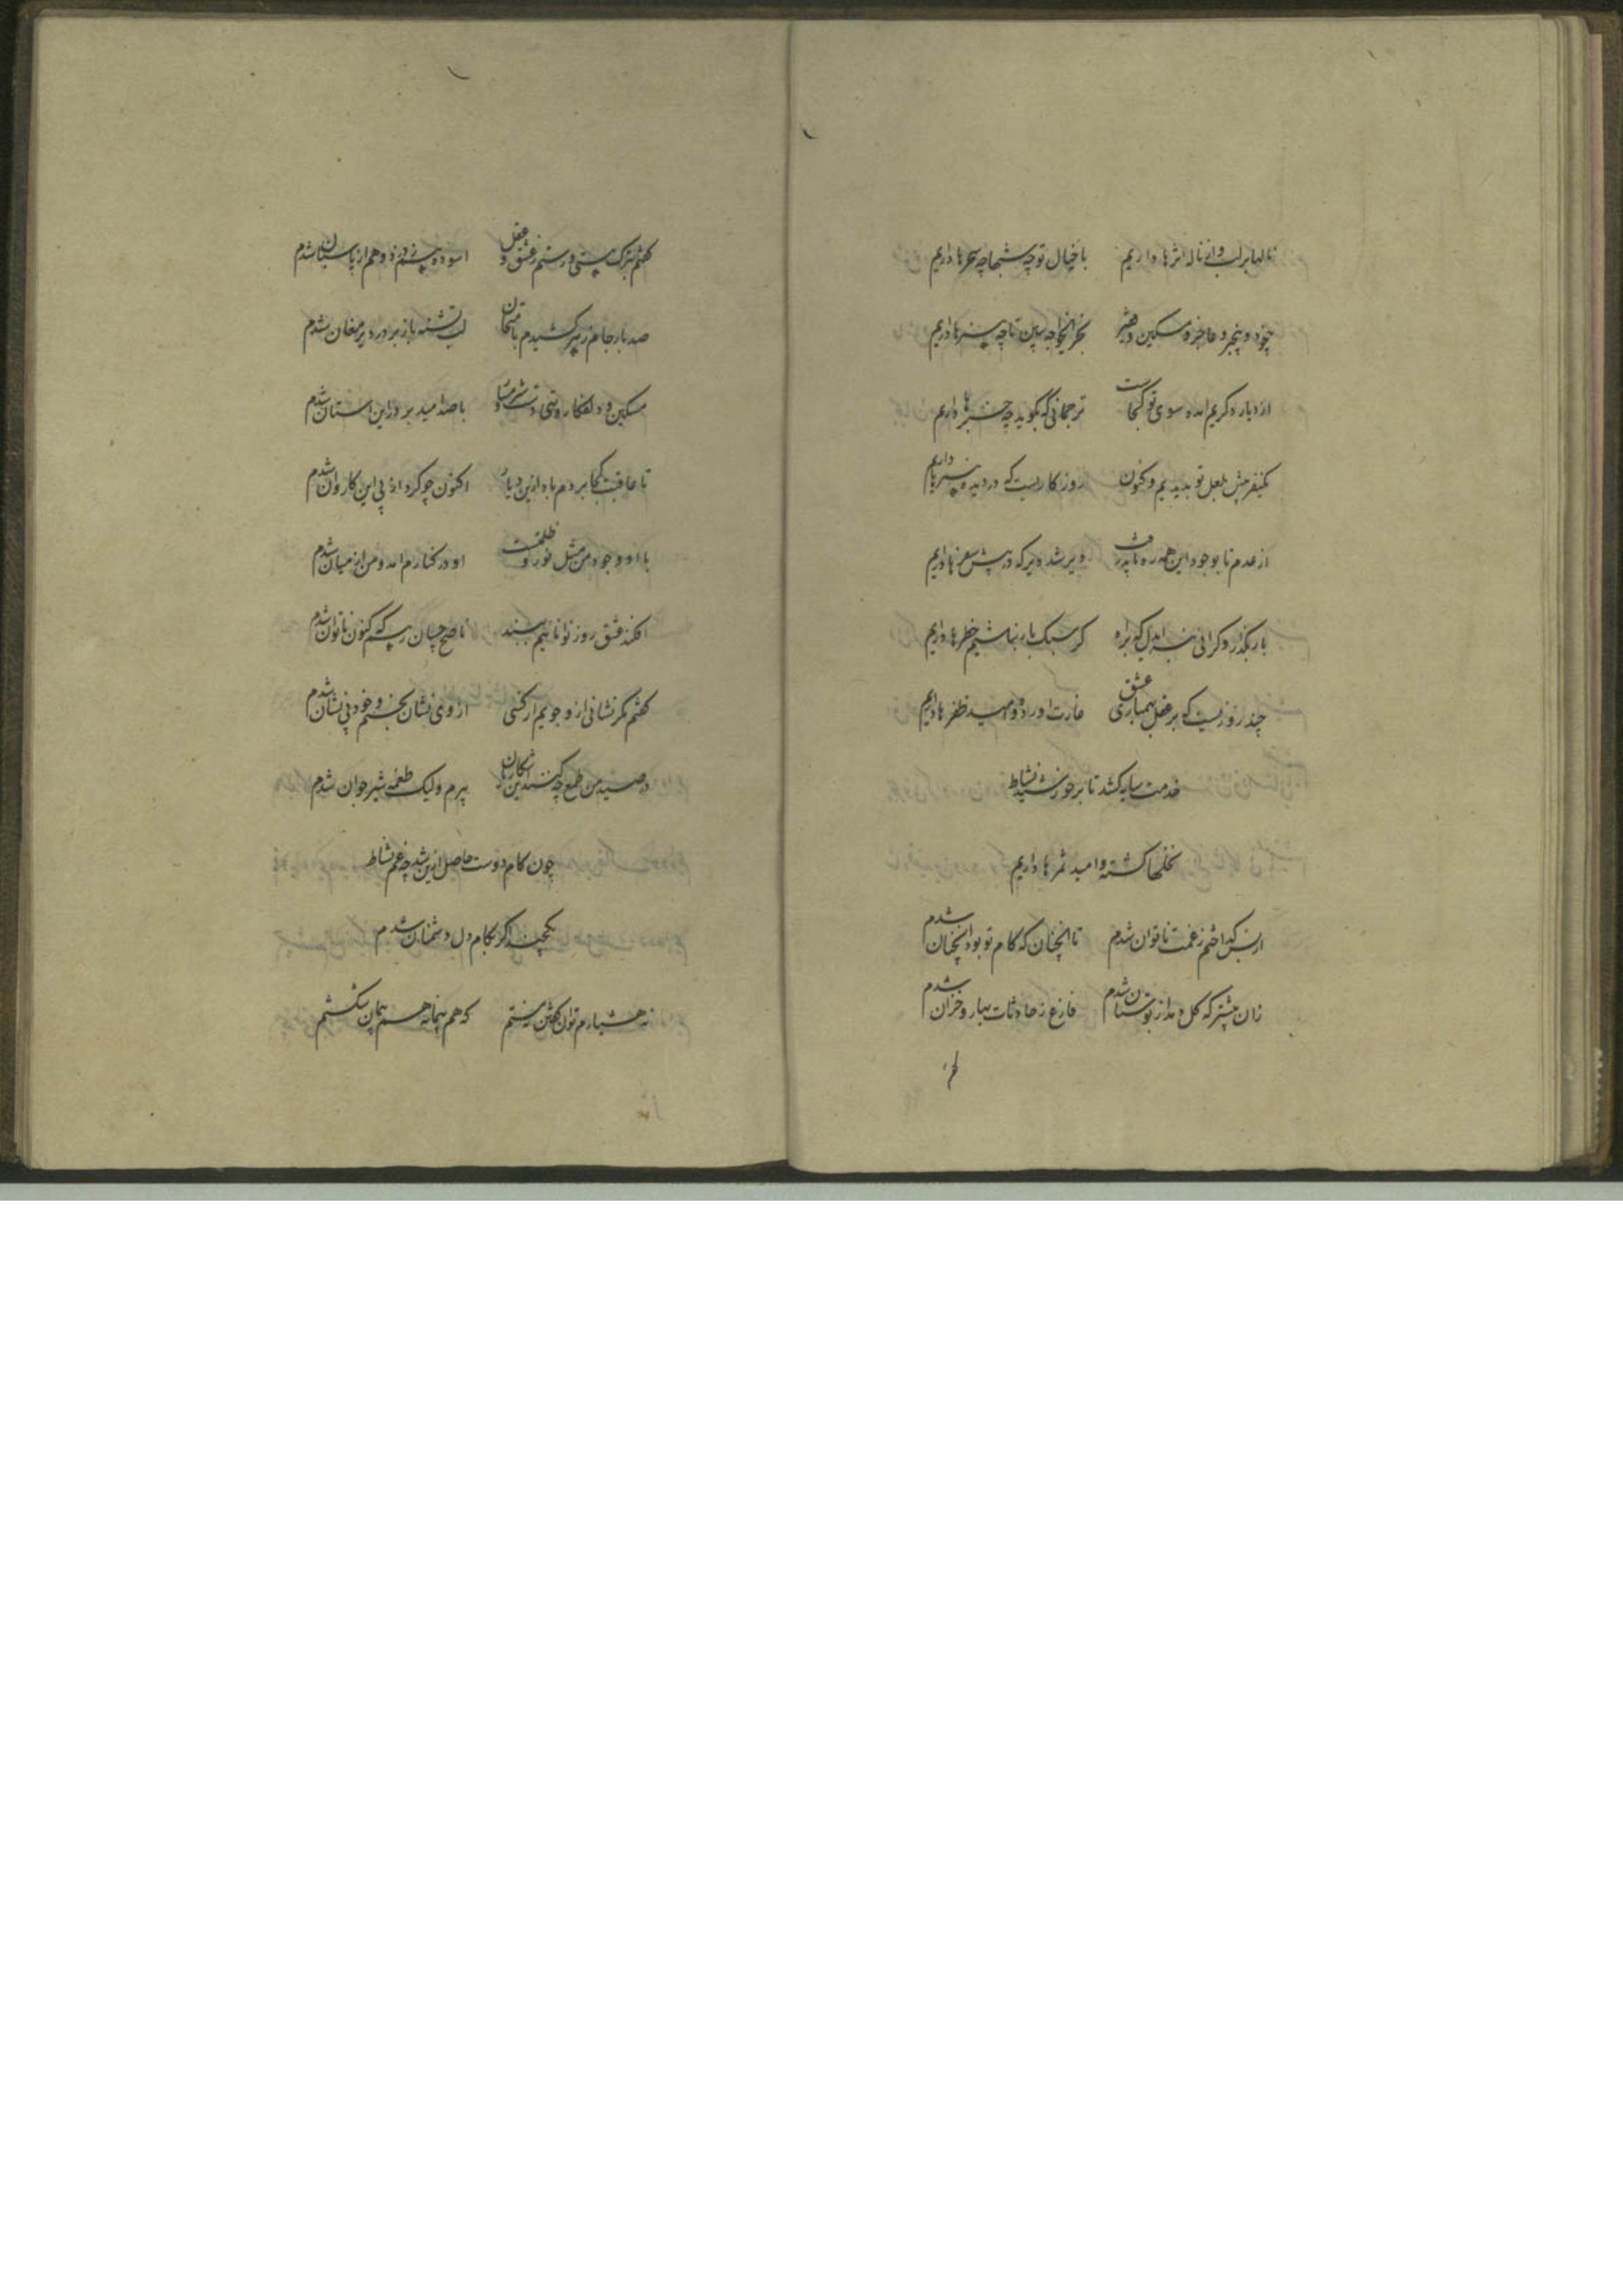 نالها بر لب و از ناله اثرها داریم با خیال تو چه شبها چه سحرها داریم
بیخود و بیخبر و عاجز و مسکین و فقیر بخر ایخواجه ببین تا چه هنرها داریم
از دیار دگریم آمده سوی تو کجاست ترجمانی که بگوید چه خبرها داریم
یکنفر پیش بلعل تو ندیدیم و کنون روزگاریست که در دیده
از عدم تا بوجود این همه ره تا چه رفت دیر شد دیر که در پیش سفرها داریم
بار بگذار و گرانی بنه ایدل که براه گر سبکبار نباشیم خطرها داریم
چند روزیست که بر عقل بهمیاری عشق غارت آورده و امید ظفرها داریم
خدمت سایه کشد تا بر خورشید نشاط
نخلها کشته و امید ثمرها داریم
از بس گداختم ز غمت ناتوان شدم تا آنچنان که کام تو بود آنچنان شدم
زان پیشتر که گل دمد از بوستان شدم فارغ ز حادثات بهار و خزان شدم
گفتم بترک هستی و رستم ز عشق و عقل آسوده هم ز دزد و هم از پاسبان شدم
صد بار جام زهر کشیدم بامتحان لب تشنه باز بر در دیر مغان شدم
مسکین و دلفکار و تهی دست و شرمسار با صد امید بر در این آستان شدم
تا عاقبت کجا بردم باد ازین دیار اکنون چو گرد از پی این کاروان شدم
با او وجود من مثل نور و ظلمت او در کنارم آمد و من از میان شدم
افکند عشق روز توانائیم ببند ناصح چسان رهم که کنون ناتوان شدم
گفتم مگر نشانی ازو جویم از کسی از وی نشان نجستم و خود بی نشان شدم
در صید من طمع چه کنند این شکارها پیرم ولیک طعمه شیر جوان شدم
چون کام دوست حاصل ازین شد چه غم نشاط
یکچند اگر بکام دل دشمنان شدم
ز هشیارم توان گفتن نه مستم که هم پیمانه هم پیمان شکستم